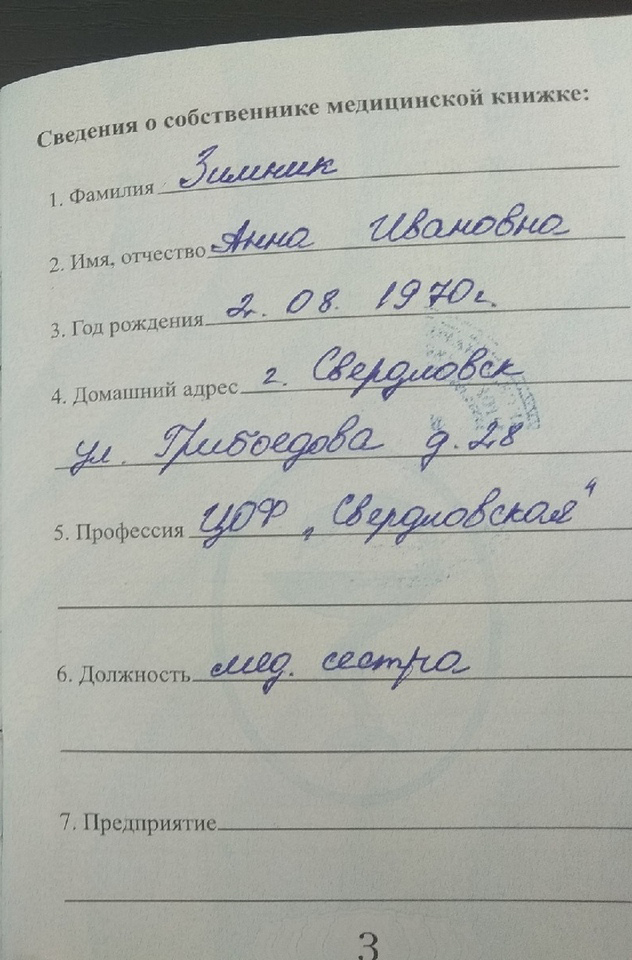 Сведения о собственнике медицинской книжке:
1. Фамилия Зимник
2. Имя, отчество Анна Ивановна
3. Год рождения 2. 08. 1970г.
4. Домашний адрес г. Свердловск
ул. Грибоедова д. 28
5. Профессия ЦОФ „Свердловская"
6. Должность мед. сестра
7. Предприятие
3